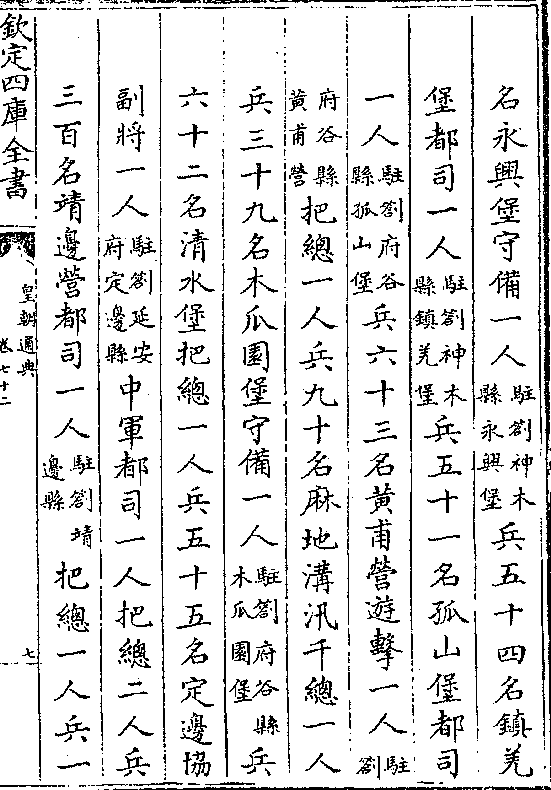 名永興堡守備一人駐劄神木縣永興堡兵五十四名鎮羌
堡都司一人駐劄神木縣鎮羌堡兵五十一名孤山堡都司
一人駐劄府谷縣孤山堡兵六十三名黄甫營遊擊一人駐劄
府谷縣黄甫營把總一人兵九十名麻地溝汛千總一人
兵三十九名木瓜園堡守備一人駐劄府谷縣木瓜園堡兵
六十二名清水堡把總一人兵五十五名定邊協
副將一人駐劄延安府定邊縣中軍都司一人把總二人兵
三百名靖邊營都司一人駐劄靖邊縣把總一人兵一
欽定四庫全書
皇朝通典
卷七十二
七